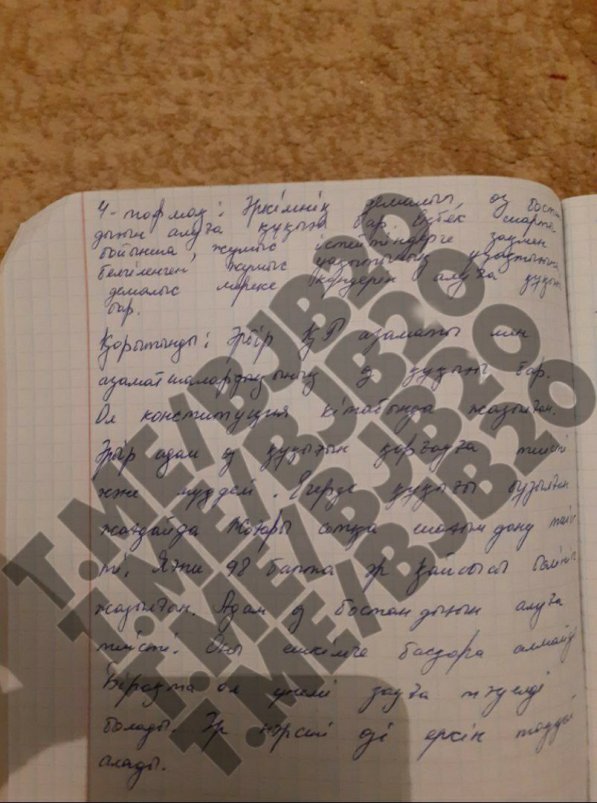 4-топ мақ: Әркімнің демалыш, өз бост
дығын алуға құқығы бар. Еңбек шарты
бойынша жұмыс істейтіндерге заңмен
белгіленген жұмыс уақытының ұзақтығына
демалыс мереке күндерін алуға құқы
бар.
Қорытынды: Әрбір ҚР азаматы мен
азаматшалардың өз құқығы бар.
Ол конституция кітабында жазылған.
Әрбір адам өз құқығын қорғауға тиісті
және мүдделі. Егерде құқығы бұзылған
жағдайда Жоғары сотқа шағымдану тиіс
ті. Яғни 98 бапта әр қайсысы
жазылған. Адам өз бостандығын алуға
тиісті. Оны ешкімге басқара алмайд
Бірақта ол үнемі заңға тәуелді
болады. Әр нәрсені өзі еркін таңдай
алады.
T.ME/BJB20
T.ME/BJB20
T.ME/BJB20
T.ME/BJB20